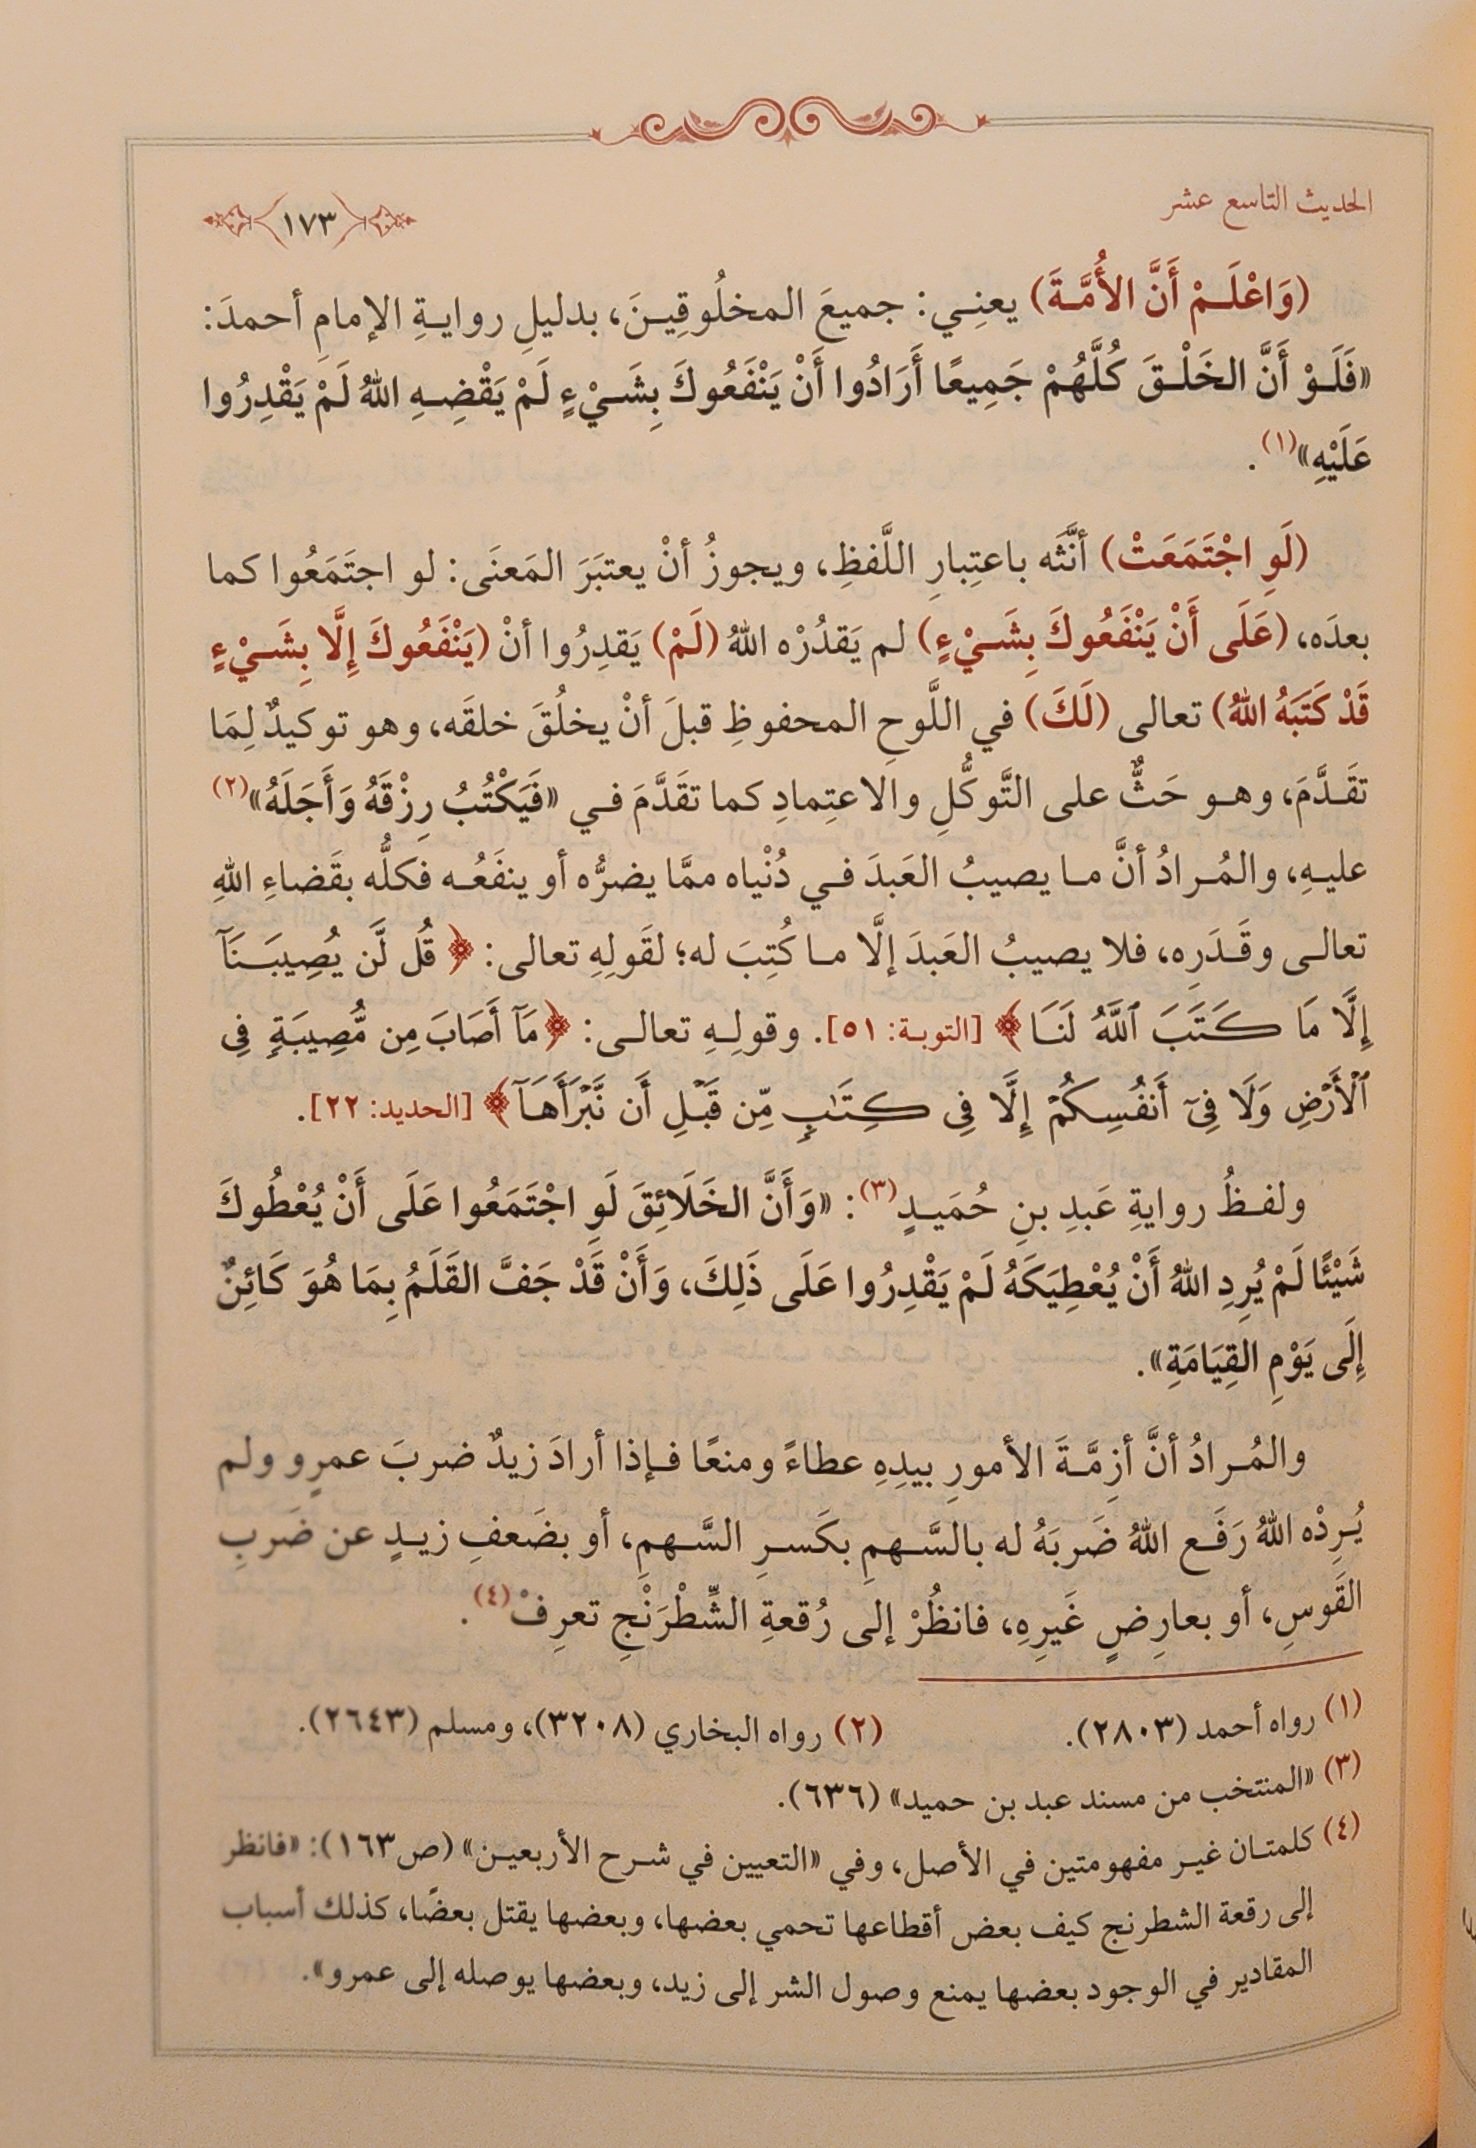 الحديث التاسع عشر
١٧٣
(وَاعْلَمْ أَنَّ الأُمَّةَ) يعنِي: جميعَ المخلُوقِينَ، بدليلِ روايةِ الإمامِ أحمدَ:
«فَلَوْ أَنَّ الخَلْقَ كُلَّهُمْ جَمِيعًا أَرَادُوا أَنْ يَنْفَعُوكَ بِشَيْءٍ لَمْ يَقْضِهِ اللهُ لَمْ يَقْدِرُوا
عَلَيْهِ»(١).
(لَوِ اجْتَمَعَتْ) أنَّثَه باعتِبارِ اللَّفظِ، ويجوزُ أنْ يعتبَرَ المَعنَى: لو اجتَمَعُوا كما
بعدَه، (عَلَى أَنْ يَنْفَعُوكَ بِشَيْءٍ) لم يَقدُرْه اللهُ (لَمْ) يَقدِرُوا أنْ (يَنْفَعُوكَ إِلَّا بِشَيْءٍ
قَدْ كَتَبَهُ اللهُ) تعالى (لَكَ) في اللَّوحِ المحفوظِ قبلَ أنْ يخلُقَ خلقَه، وهو توكيدٌ لِمَا
تقَدَّمَ، وهو حَثٌّ على التَّوكُّلِ والاعتِمادِ كما تقَدَّمَ في «فَيَكْتُبُ رِزْقَهُ وَأَجَلَهُ»(٢)
عليهِ، والمُرادُ أنَّ ما يصيبُ العَبدَ في دُنْياه ممَّا يضرُّه أو ينفَعُه فكلُّه بقَضاءِ اللهِ
تعالى وقَدَرِه، فلا يصيبُ العَبدَ إلَّا ما كُتِبَ له؛ لقَولِهِ تعالى: ﴿قُل لَّن يُصِيبَنَآ
إِلَّا مَا كَتَبَ ٱللَّهُ لَنَا﴾ [التوبة: ٥١]. وقولِهِ تعالى: ﴿مَآ أَصَابَ مِن مُّصِيبَةٍ فِى
ٱلْأَرْضِ وَلَا فِىٓ أَنفُسِكُمْ إِلَّا فِى كِتَٰبٍ مِّن قَبْلِ أَن نَّبْرَأَهَآ﴾ [الحديد: ٢٢].
ولفظُ روايةِ عَبدِ بنِ حُمَيدٍ(٣): «وَأَنَّ الخَلَائِقَ لَوِ اجْتَمَعُوا عَلَى أَنْ يُعْطُوكَ
شَيْئًا لَمْ يُرِدِ اللهُ أَنْ يُعْطِيَكَهُ لَمْ يَقْدِرُوا عَلَى ذَلِكَ، وَأَنْ قَدْ جَفَّ القَلَمُ بِمَا هُوَ كَائِنٌ
إِلَى يَوْمِ القِيَامَةِ».
والمُرادُ أنَّ أزِمَّةَ الأمورِ بيدِهِ عطاءً ومنعًا فإذا أرادَ زيدٌ ضربَ عمرٍو ولم
يُرِدْه اللهُ رَفَع اللهُ ضَربَهُ له بالسَّهمِ بكَسرِ السَّهمِ، أو بضَعفِ زيدٍ عن ضَربِ
القَوسِ، أو بعارِضٍ غَيرِهِ، فانظُرْ إلى رُقعةِ الشِّطْرَنْجِ تعرِفْ(٤).
(١) رواه أحمد (٢٨٠٣). (٢) رواه البخاري (٣٢٠٨)، ومسلم (٢٦٤٣).
(٣) «المنتخب من مسند عبد بن حميد» (٦٣٦).
(٤) كلمتان غير مفهومتين في الأصل، وفي «التعيين في شرح الأربعين» (ص١٦٣): «فانظر
إلى رقعة الشطرنج كيف بعض أقطاعها تحمي بعضها، وبعضها يقتل بعضًا، كذلك أسباب
المقادير في الوجود بعضها يمنع وصول الشر إلى زيد، وبعضها يوصله إلى عمرو».